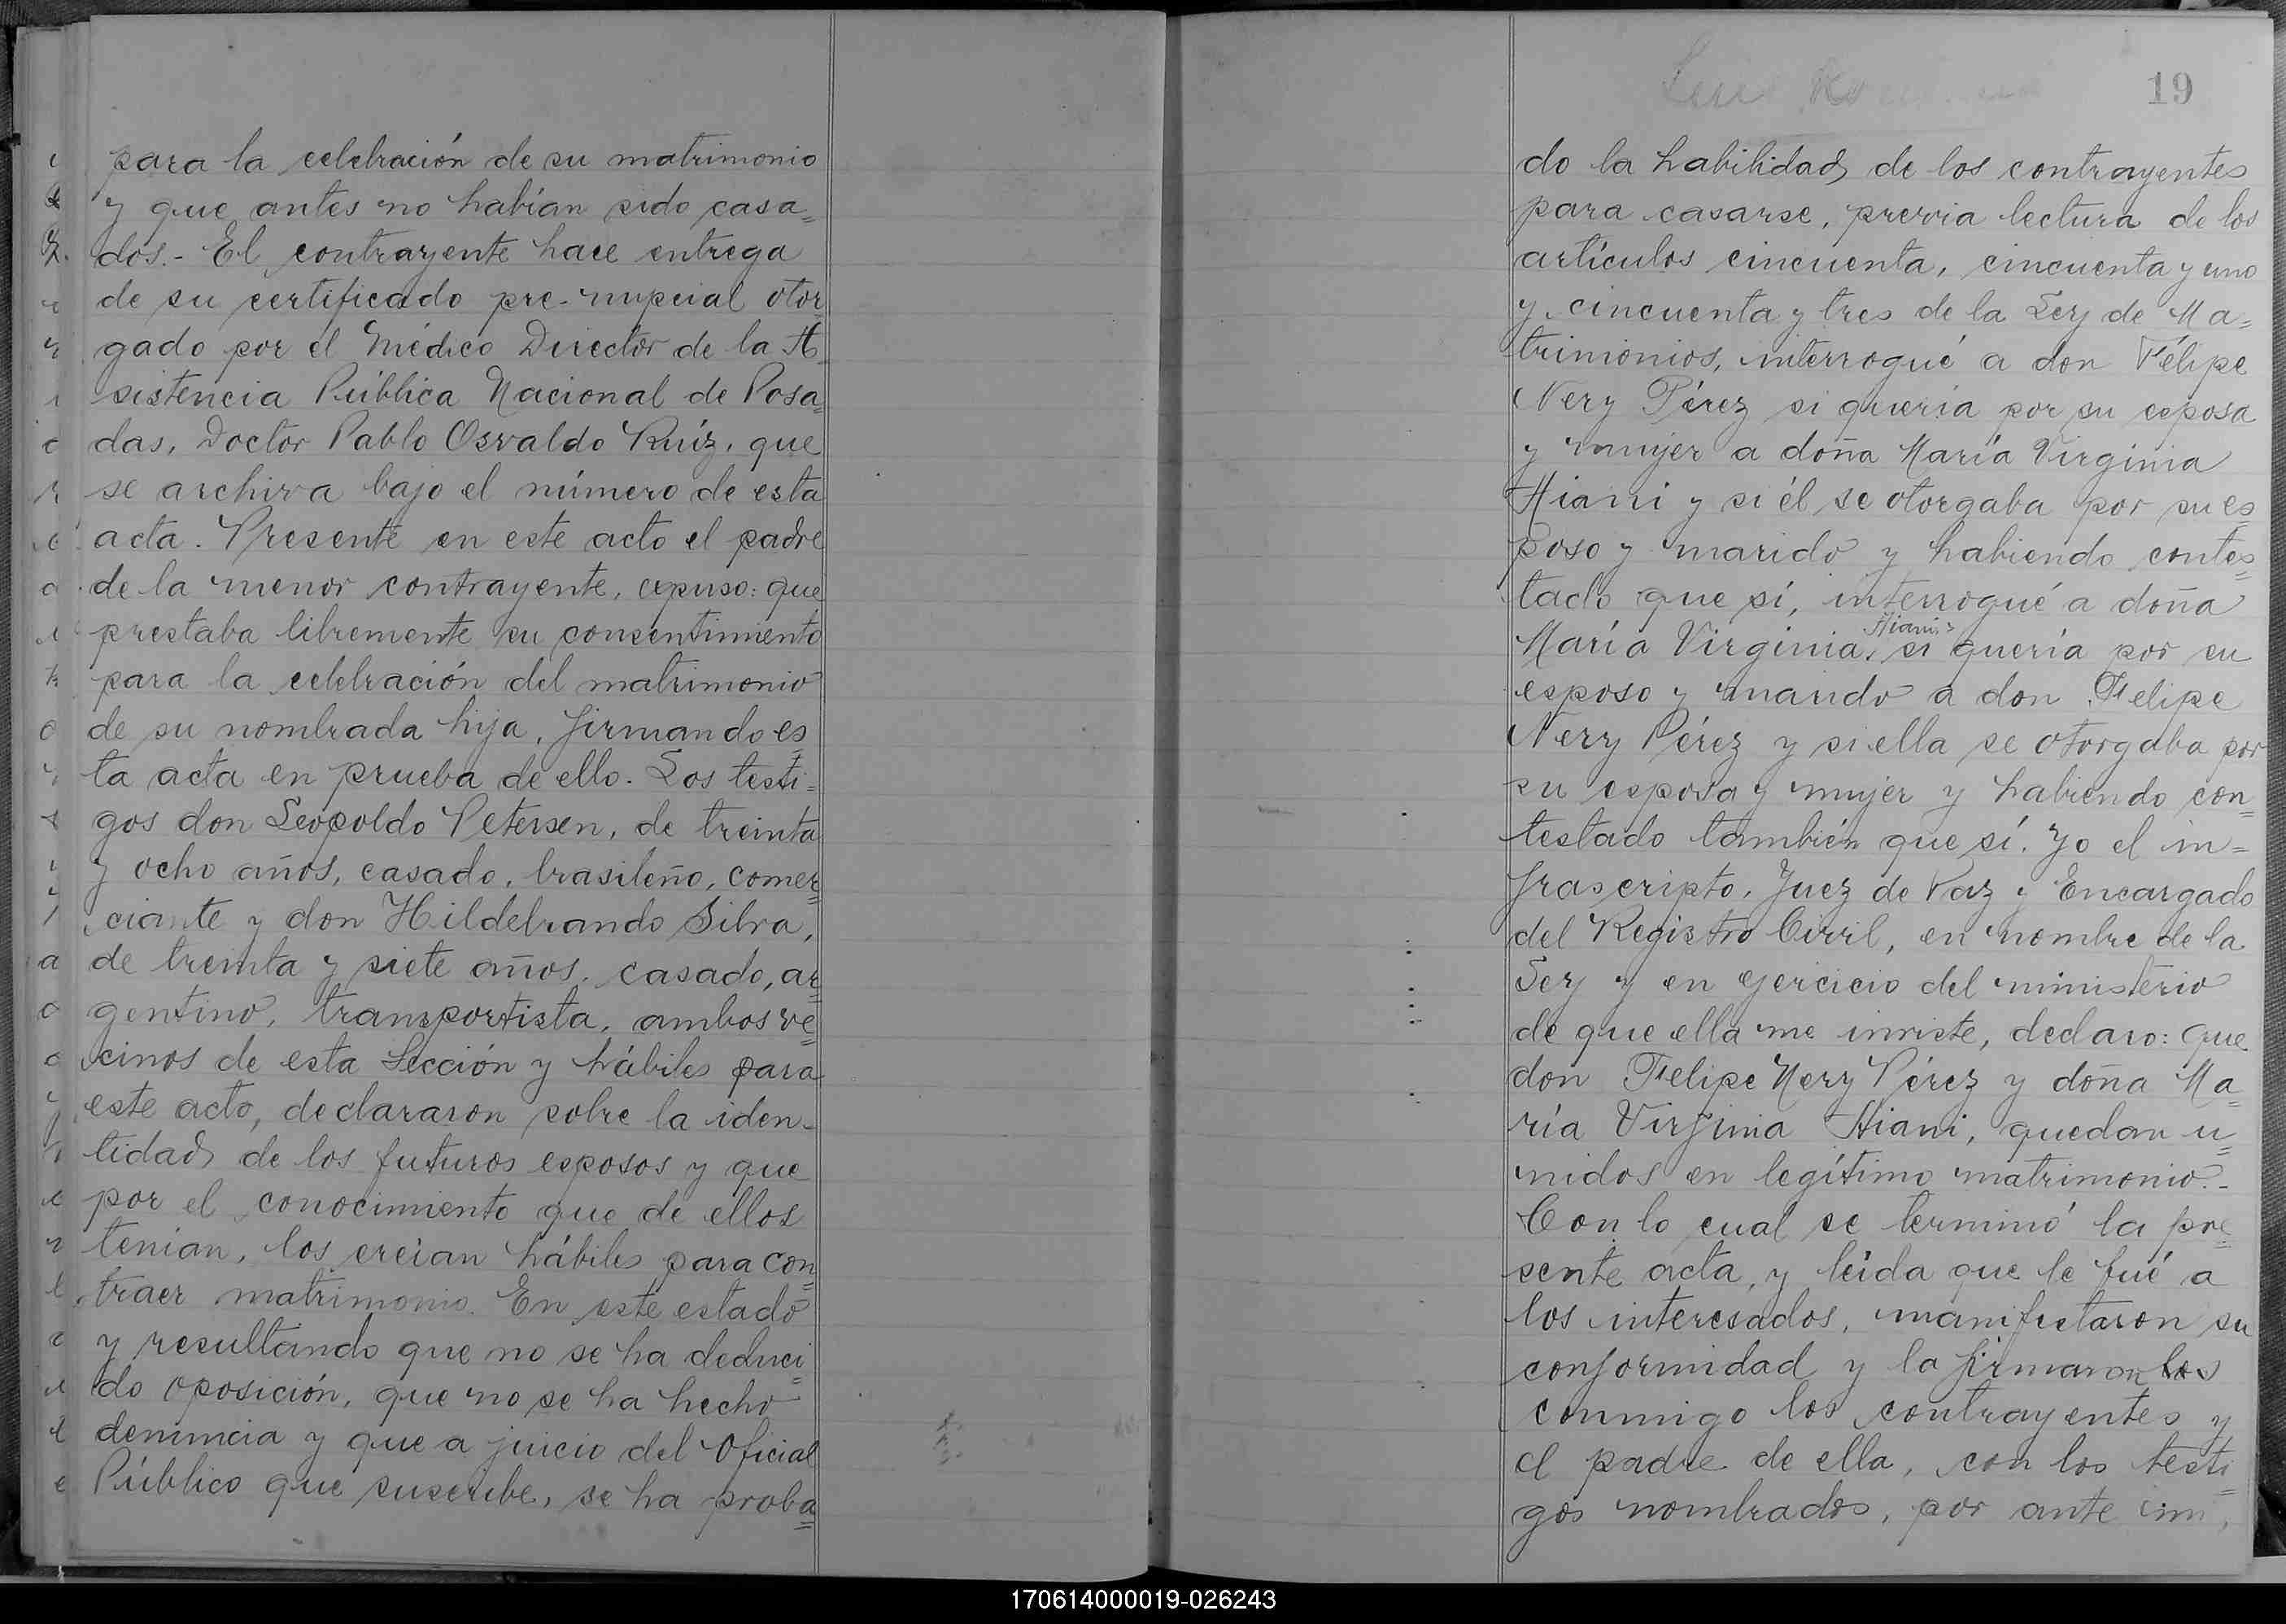 para la celebración de su matrimonio
y que antes no habían sido casa=
dos.- El contrayente hace entrega
de su certificado pre-nupcial otor
gado por el Médico Director de la A
sistencia Pública Nacional de Posa=
das, Doctor Pablo Osvaldo Ruíz, que
se archiva bajo el número de esta
acta. Presente en este acto el padre
de la menor contrayente, expuso: que
prestaba libremente su consentimiento
para la celebración del matrimonio
de su nombrada hija, firmando es
ta acta en prueba de ello. Los testi=
gos don Leopoldo Petersen, de treinta
y ocho años, casado, brasileño, comer=
ciante y don Hildebrando Silva,
de treinta y siete años, casado, ar=
gentino, transportista, ambos ve=
cinos de esta Sección y hábiles para
este acto, declararon sobre la iden-
tidad de los futuros esposos y que
por el conocimiento que de ellos
tenían, los creían hábiles para con=
traer matrimonio. En este estado
y resultando que no se ha deduci=
do oposición, que no se ha hecho
denuncia y que a juicio del Oficial
Público que suscribe, se ha proba=
19
do la habilidad de los contrayentes
para casarse, previa lectura de los
artículos cincuenta, cincuenta y uno
y cincuenta y tres de la Ley de Ma=
trimonios, interrogué a don Felipe
Nery Pérez si quería por su esposa
y mujer a doña María Virginia
Hiani y si él se otorgaba por su es
poso y marido y habiendo contes=
tado que sí, interrogué a doña
María Virginia Hiani, si quería por su
esposo y marido a don Felipe
Nery Pérez y si ella se otorgaba por
su esposa y mujer y habiendo con=
testado también que sí. Yo el in=
frascripto, Juez de Paz y Encargado
del Registro Civil, en nombre de la
Ley y en ejercicio del ministerio
de que ella me inviste, declaro: que
don Felipe Nery Pérez y doña Ma=
ría Virginia Hiani, quedan u=
nidos en legítimo matrimonio.-
Con lo cual se terminó la pre=
sente acta, y leída que le fué a
los interesados, manifestaron su
conformidad y la firmaron los
conmigo los contrayentes y
el padre de ella, con los testi=
gos nombrados, por ante mi,
170614000019-026243